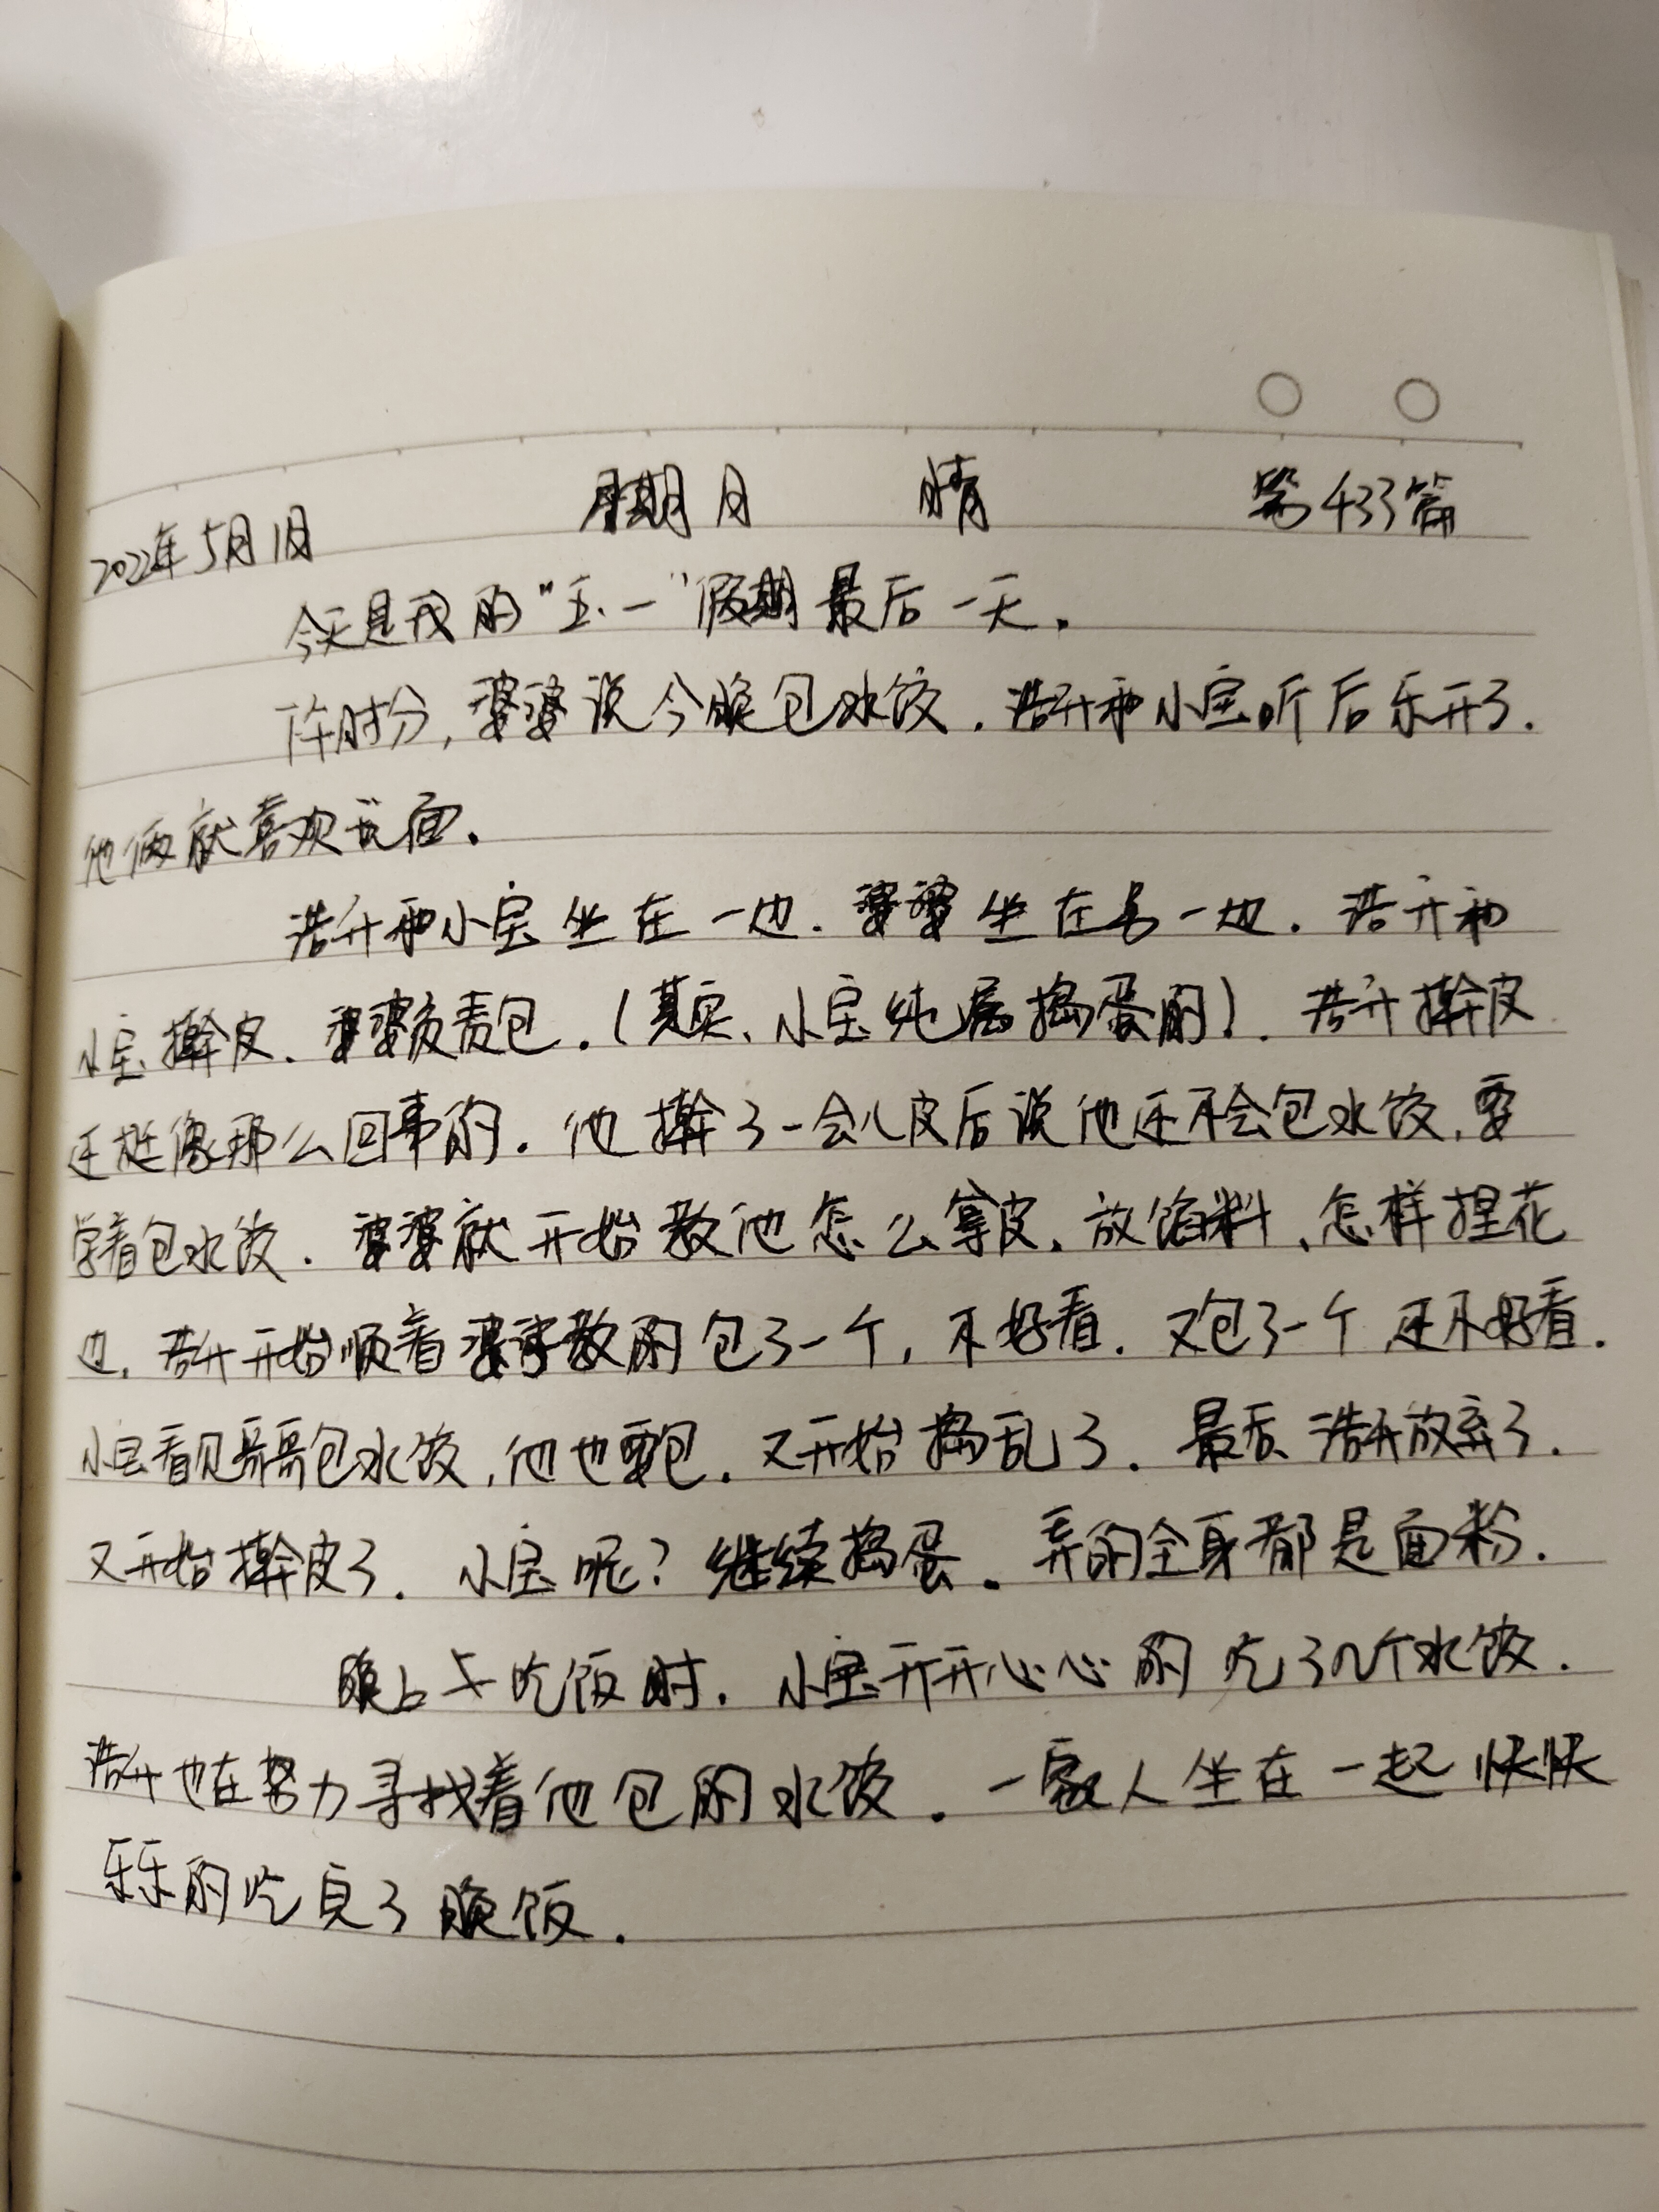 2022年5月1日 星期日 晴 第433篇
今天是我的"五·一"假期最后一天。
下午时分,婆婆说今晚包水饺.浩升和小宝听后乐开了.
他俩就喜欢玩面.
浩升和小宝坐在一边.婆婆坐在另一边.浩升和
小宝擀皮、婆婆负责包.(其实、小宝纯属捣蛋的).浩升擀皮
还挺像那么回事的.他擀了一会儿皮后说他还不会包水饺,要
学着包水饺.婆婆就开始教他怎么拿皮、放馅料、怎样捏花
边.浩升开始顺着婆婆教的包了一个,不好看.又包了一个还不好看.
小宝看见哥哥包水饺,他也要包.又开始捣乱了.最后浩升放弃了.
又开始擀皮了.小宝呢?继续捣蛋.弄的全身都是面粉.
晚上吃饭时.小宝开开心心的吃了几个水饺.
浩升也在努力寻找着他包的水饺.一家人坐在一起快快
乐乐的吃了晚饭.